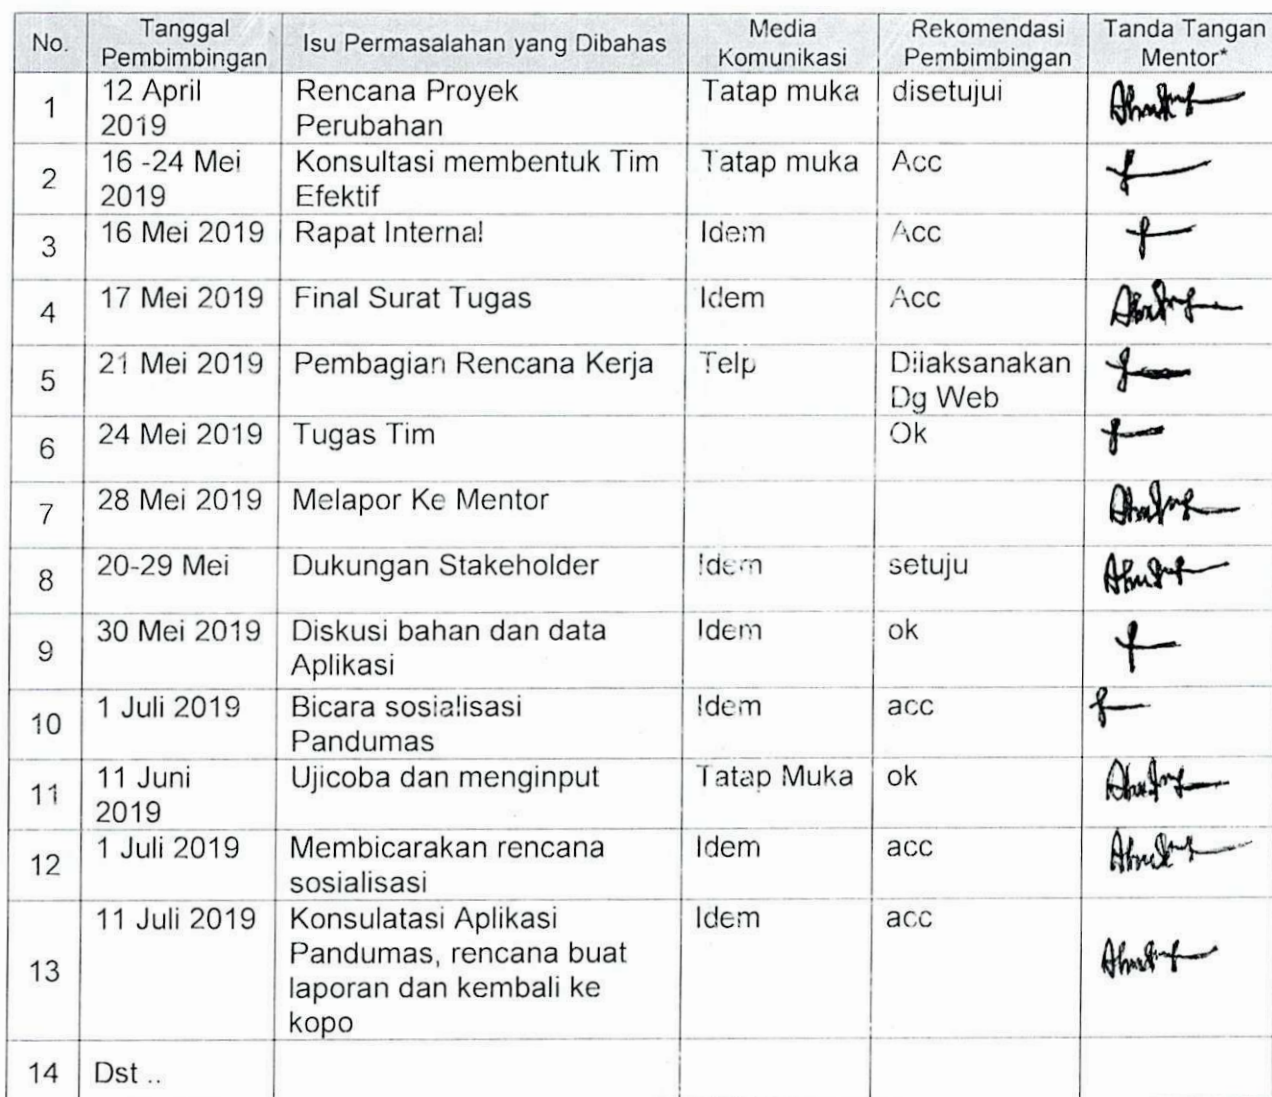 No.
Tanggal
Pembimbingan
Isu Permasalahan yang Dibahas
Media
Komunikasi
Rekomendasi
Pembimbingan
Tanda Tangan
Mentor*
1
12 April
2019
Rencana Proyek
Perubahan
Tatap muka
disetujui
2
16 -24 Mei
2019
Konsultasi membentuk Tim
Efektif
Tatap muka
Acc
3
16 Mei 2019
Rapat Internal
Idem
Acc
4
17 Mei 2019
Final Surat Tugas
Idem
Acc
5
21 Mei 2019
Pembagian Rencana Kerja
Telp
Dilaksanakan
Dg Web
6
24 Mei 2019
Tugas Tim
Ok
7
28 Mei 2019
Melapor Ke Mentor
8
20-29 Mei
Dukungan Stakeholder
Idem
setuju
9
30 Mei 2019
Diskusi bahan dan data
Aplikasi
Idem
ok
10
1 Juli 2019
Bicara sosialisasi
Pandumas
Idem
acc
11
11 Juni
2019
Ujicoba dan menginput
Tatap Muka
ok
12
1 Juli 2019
Membicarakan rencana
sosialisasi
Idem
acc
13
11 Juli 2019
Konsulatasi Aplikasi
Pandumas, rencana buat
laporan dan kembali ke
kopo
Idem
acc
14
Dst ..